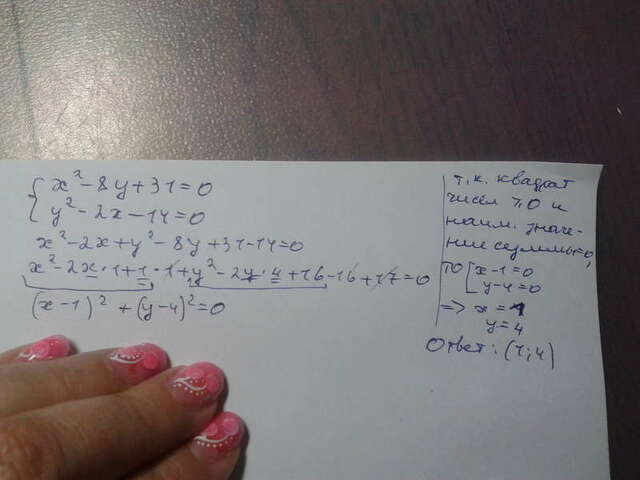 x² - 8y + 31 = 0
y² - 2x - 14 = 0
x² - 2x + y² - 8y + 31 - 14 = 0
x² - 2x · 1 + 1 - 1 + y² - 2y · 4 + 16 - 16 + 17 = 0
(x - 1)² + (y - 4)² = 0
т.к. квадрат
чисел ≥ 0 и
наим. значе-
ние суммы - 0,
то [x - 1 = 0
y - 4 = 0
=> x = 1
y = 4
Ответ: (1; 4)